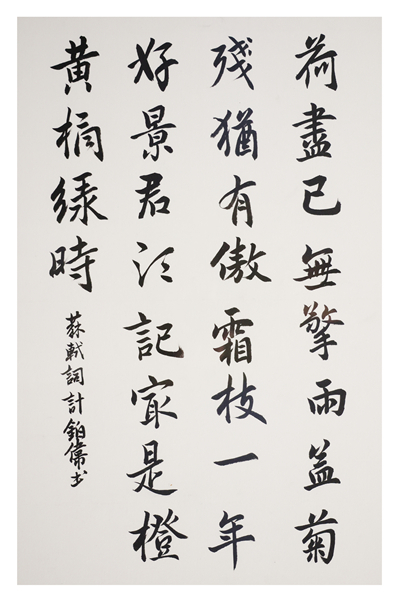 荷盡已無擎雨盖菊
殘猶有傲霜枝一年
好景君須記最是橙
黃橘綠時
蘇軾詞計鉑儒书